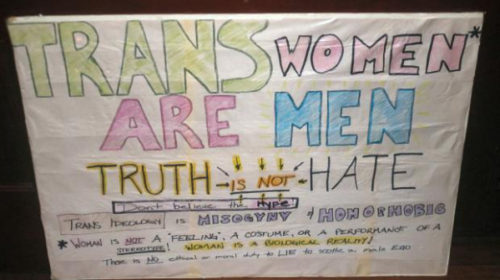 TRANS WOMEN*
ARE MEN
TRUTH IS NOT HATE
Don't believe the Hype
TRANS IDEOLOGY IS MISOGYNY & HOMOPHOBIC
* WOMAN IS NOT A "FEELING", A COSTUME, OR A PERFORMANCE OF A
STEREOTYPE! WOMAN IS A BIOLOGICAL REALITY!
There is NO ethical or moral duty to LIE to soothe a male EGO